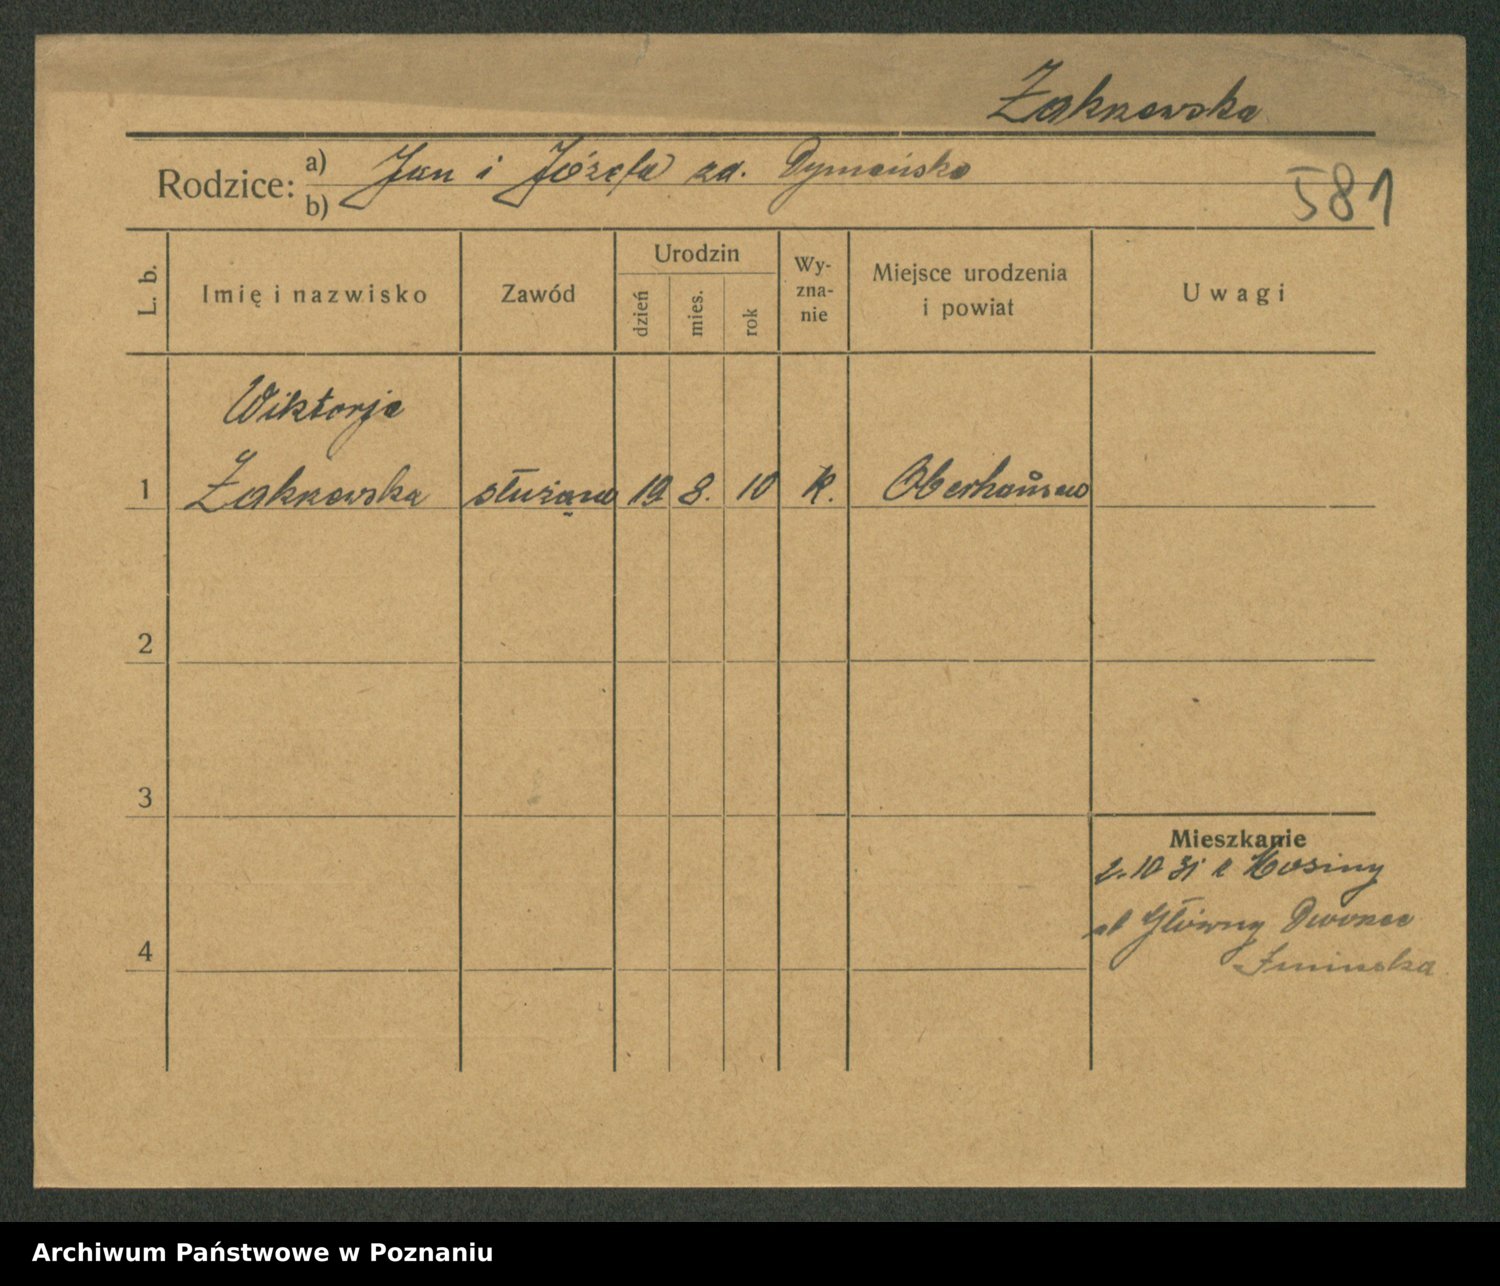 Żakrzewska
Rodzice: a) Jan i Józefa zd. Dymańska
b)
581
L. b. Imię i nazwisko Zawód Urodzin dzień mies. rok Wy-zna-nie Miejsce urodzenia i powiat Uwagi
Wiktorja
1 służąca 19 8. 10 k. Oberhausen
2
3
Mieszkanie
10 31 z Mosiny
Główny Dworzec
4
Archiwum Państwowe w Poznaniu